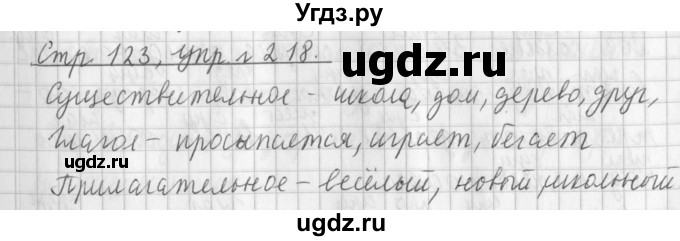 Угдз.ру
Стр 123, упр. 218.
ugdz.ru
Существительное - школа, дом, дерево, друг,
Глагол - просыпается, играет, бегает
ugdz.ru
Прилагательное - весёлый, новый школьный
ugdz.ru